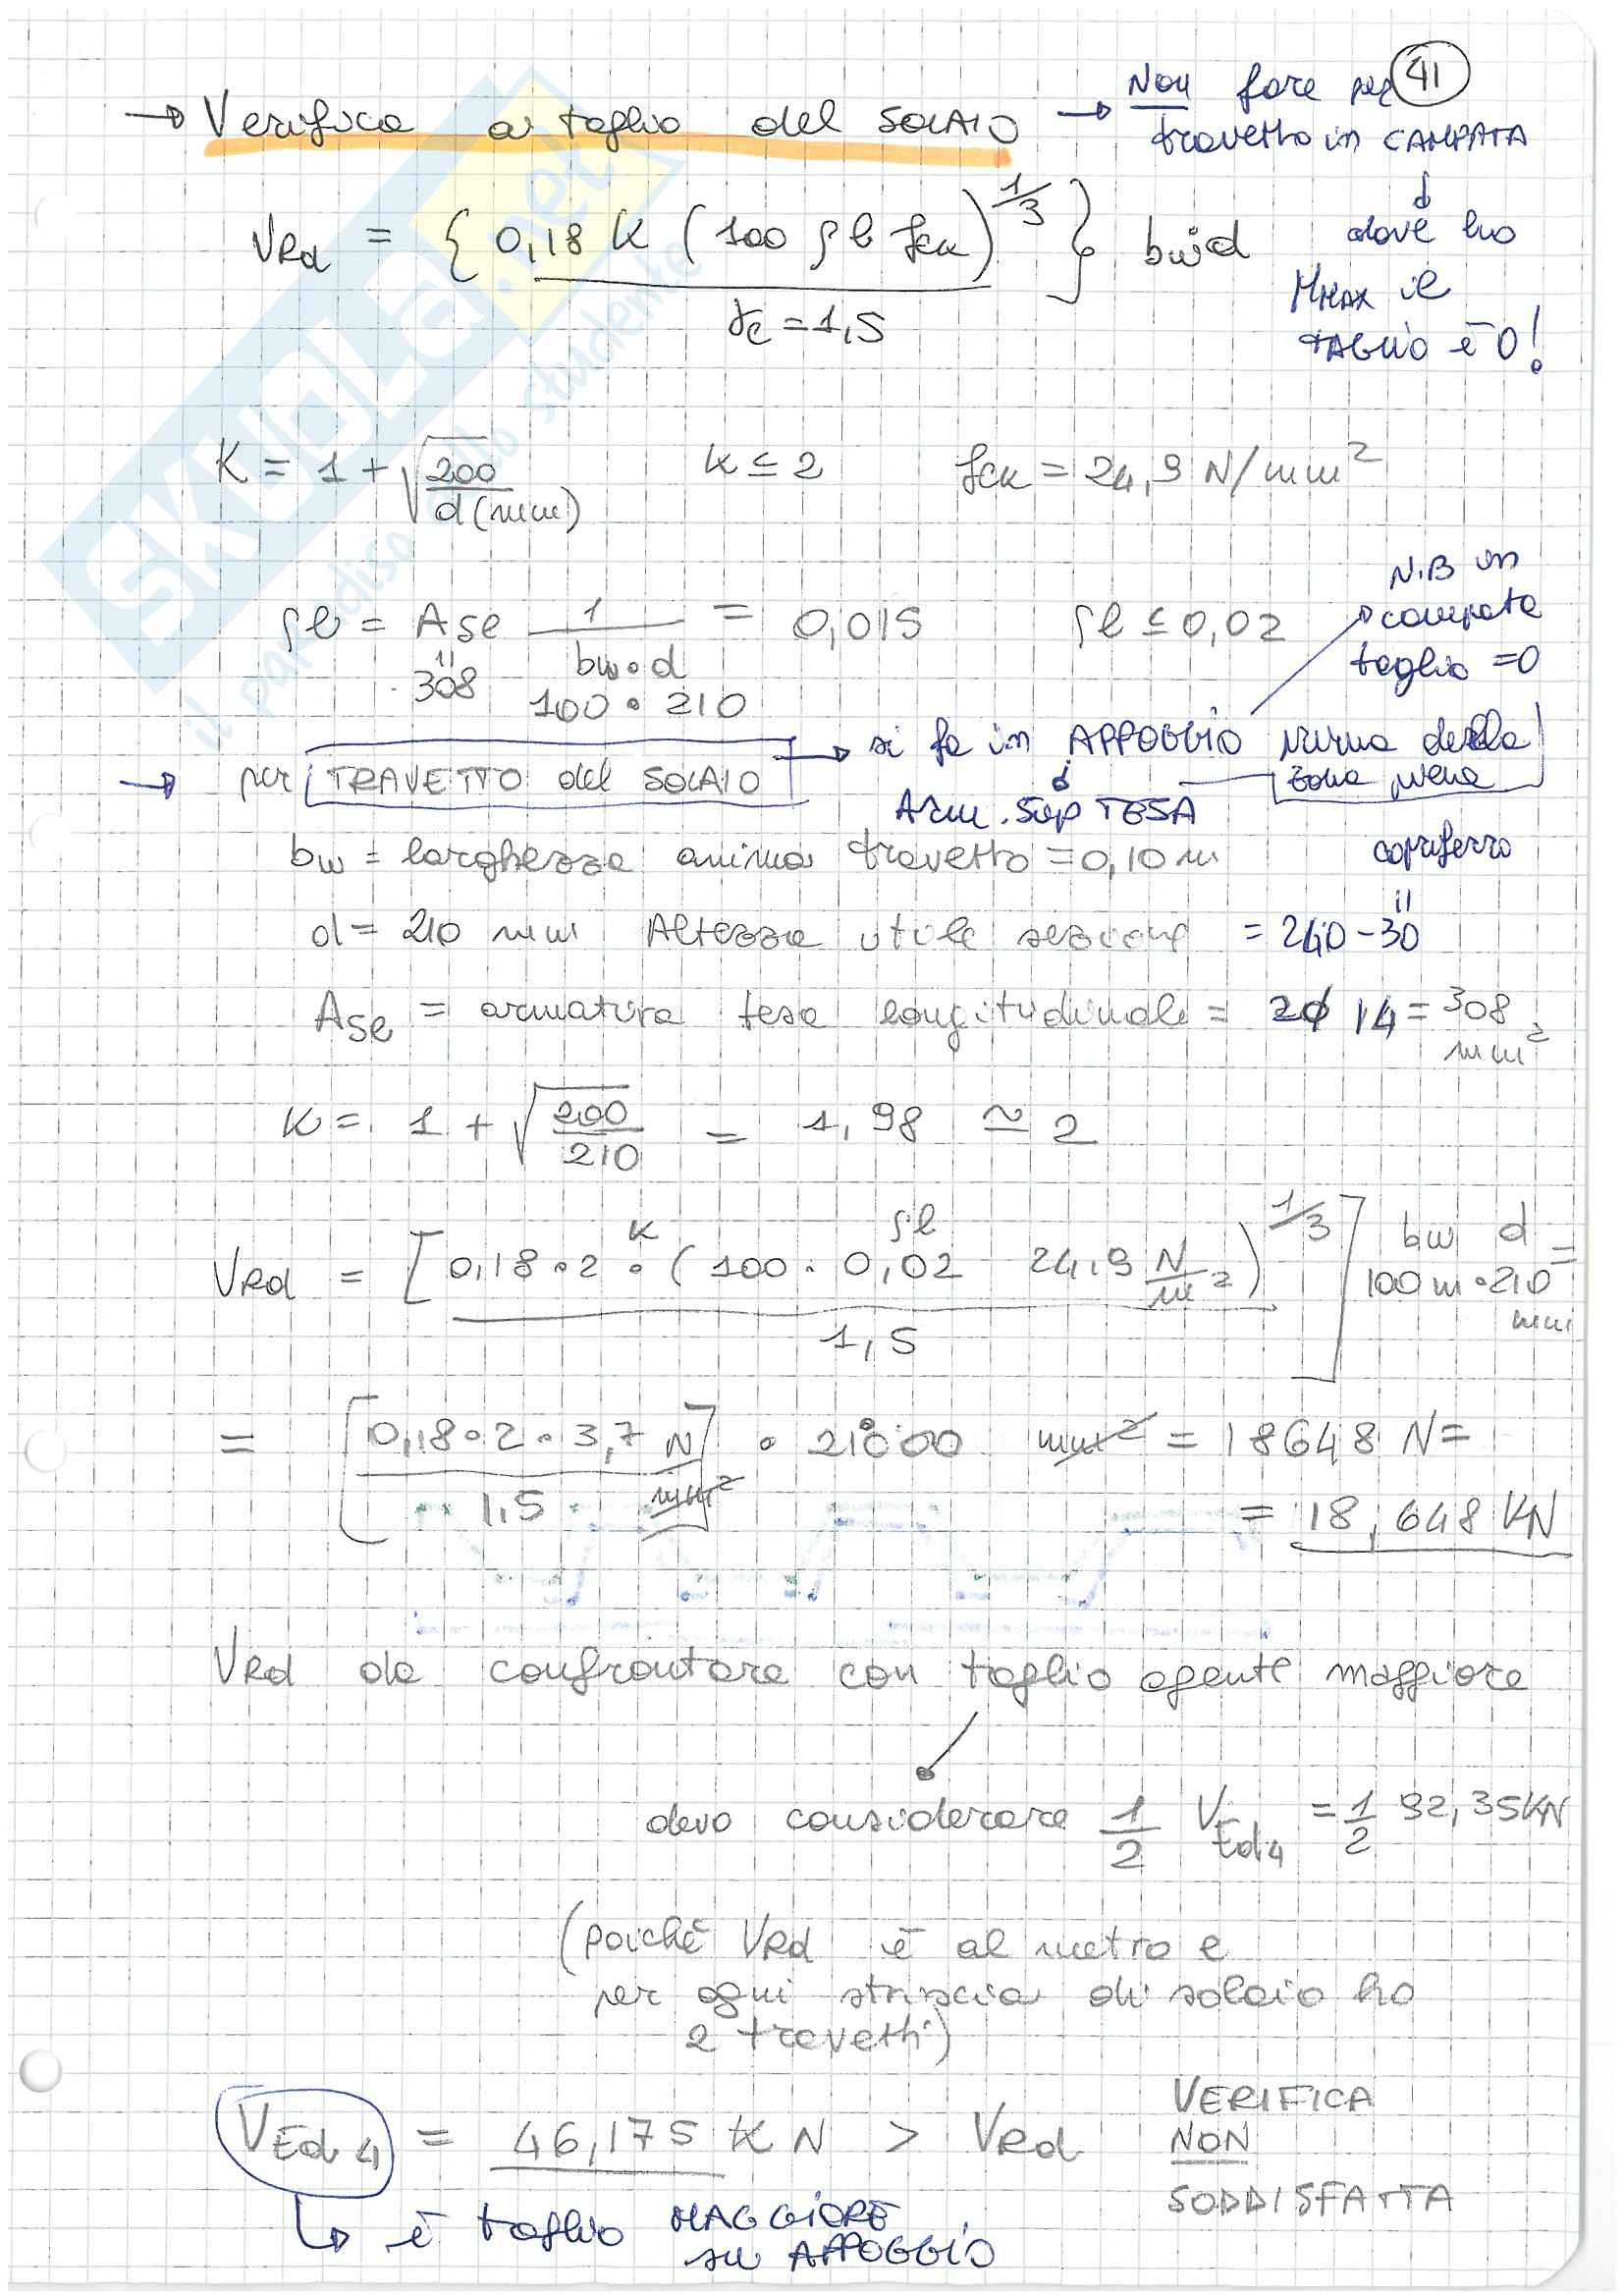 41
→ Verifica a taglio del SOLAIO → Non fare per
travetto in CAMPATA
↓
dove ho
MMAX il
TAGLIO è 0!
VRd = { 0,18 K (100 ρl fck)^1/3 / γc = 1,5 } bw·d
K = 1 + √200/d(mm) K ≤ 2 fck = 24,9 N/mm²
ρl = Asl 1/bw·d = 0,015 ρl ≤ 0,02
308 100 · 210
N.B in
campata
taglio = 0
→ per TRAVETTO del SOLAIO → si fa in APPOGGIO prima della
zona piena
Arm. Sup TESA
bw = larghezza anima travetto = 0,10 m
copriferro
d = 210 mm Altezza utile sezione = 240 - 30
Asl = armatura tesa longitudinale = 2ϕ 14 = 308 mm²
K = 1 + √200/210 = 1,98 ≃ 2
VRd = [ 0,18 · 2 · (100 · 0,02 24,9 N/m²)^1/3 / 1,5 ] bw d =
K ρl 100 m · 210 mm
= [ 0,18 · 2 · 3,7 N / 1,5 mm² ] · 21000 mm² = 18648 N =
= 18,648 KN
VRd da confrontare con taglio agente maggiore
devo considerare 1/2 VEd4 = 1/2 92,35KN
(poiché VRd è al metro e
per ogni striscia di solaio ho
2 travetti)
VEd 4 = 46,175 KN > VRd VERIFICA
NON
SODDISFATTA
↳ è taglio MAGGIORE
su APPOGGIO
SKUOLA.net
il paradiso dello studente